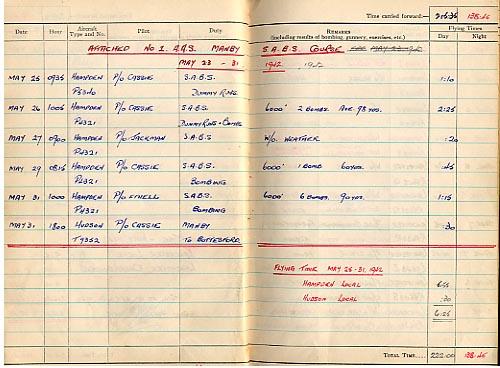 Time carried forward:— 138.45
Date Hour Aircraft Type and No. Pilot Duty REMARKS (including results of bombing, gunnery, exercises, etc.) Flying Times Day Night
ATTACHED No 1. A.A.S. MANBY S.A.B.S. COURSE
MAY 23 - 31. 1942 1942
MAY 25 0935 HAMPDEN P/O CASSIE S.A.B.S. 1:10
DUMMY RUNS
MAY 26 1005 HAMPDEN P/O CASSIE S.A.B.S. 6000' 2 BOMBS. AVE. 98 YDS. 2:25
P4321 DUMMY RUNS + BOMBS
MAY 27 0900 HAMPDEN P/O JACKMAN S.A.B.S. W/O. WEATHER :20
P4321
MAY 29 0815 HAMPDEN P/O CASSIE S.A.B.S. 6000' 1 BOMB 60 YDS. :45
P4321 BOMBING
MAY 31 1000 HAMPDEN P/O S.A.B.S. 6000' 6 BOMBS. 90 YDS. 1:15
P4321 BOMBING
MAY 31 1800 HUDSON P/O CASSIE MANBY :30
T9352 TO BOTTESFORD
FLYING TIME MAY 25-31. 1942
HAMPDEN LOCAL
HUDSON LOCAL :30
6:25
TOTAL TIME.... 222:00 138.45